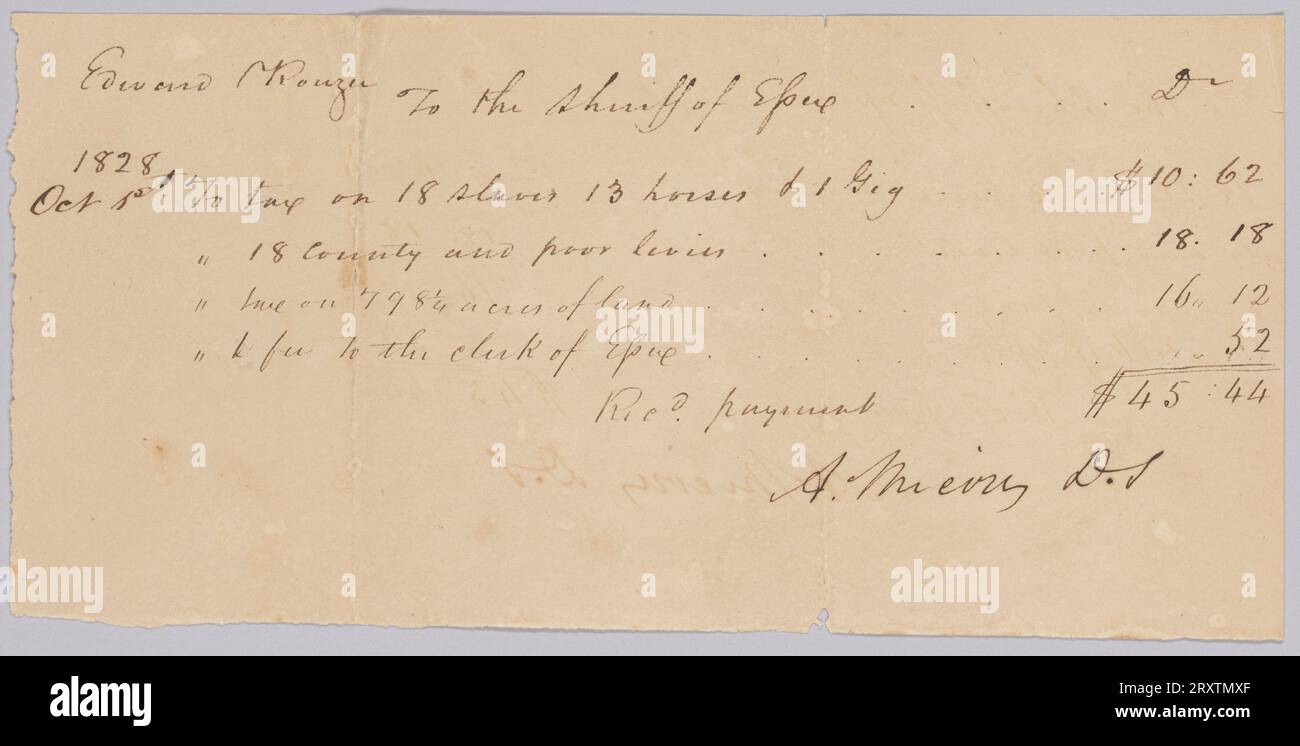 Edward Rouzee To the Sheriff of Essex . . . . Dr
1828
Oct 1st To tax on 18 slaves 13 horses & 1 Gig . . . . $10: 62
" 18 County and poor levies . . . . . . . . 18. 18
" tax on 798¼ acres of land . . . . . . . . 16" 12
" & fee to the clerk of Essex . . . . . . . . " 52
Recd. payment $45:44
A. Micou D.S
alamy
Image ID: 2RXTMXF
www.alamy.com